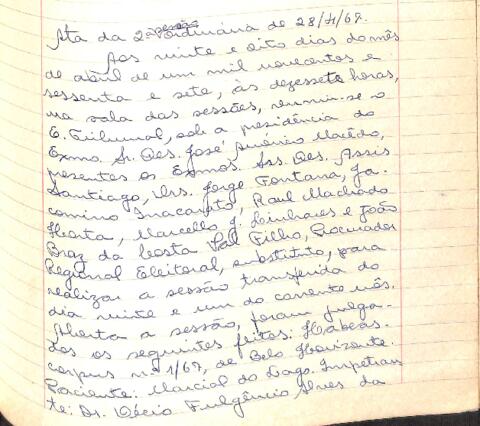 Ata da 2ª sessão ordinária de 28/4/67.
Aos vinte e oito dias do mês
de abril de um mil novecentos e
sessenta e sete, às dezessete horas,
na sala das sessões, reuniu-se o
E. Tribunal, sob a presidência do
Exmo. Sr. Des. José Américo Macêdo,
presentes os Exmos. Srs. Des. Assis
Santiago, Drs. Jorge Fontana, Ja-
comino Inacarato, Raul Machado
Horta, Marcello J. Linhares e João
Braz da Costa Val Filho, Procurador
Regional Eleitoral, substituto, para
realizar a sessão transferida do
dia vinte e um do corrente mês.
Aberta a sessão, foram julga-
dos os seguintes feitos: Habeas-
corpus nº 1/67, de Belo Horizonte.
Paciente: Marcial do Lago. Impetran
te: Dr. Décio Fulgêncio Alves da